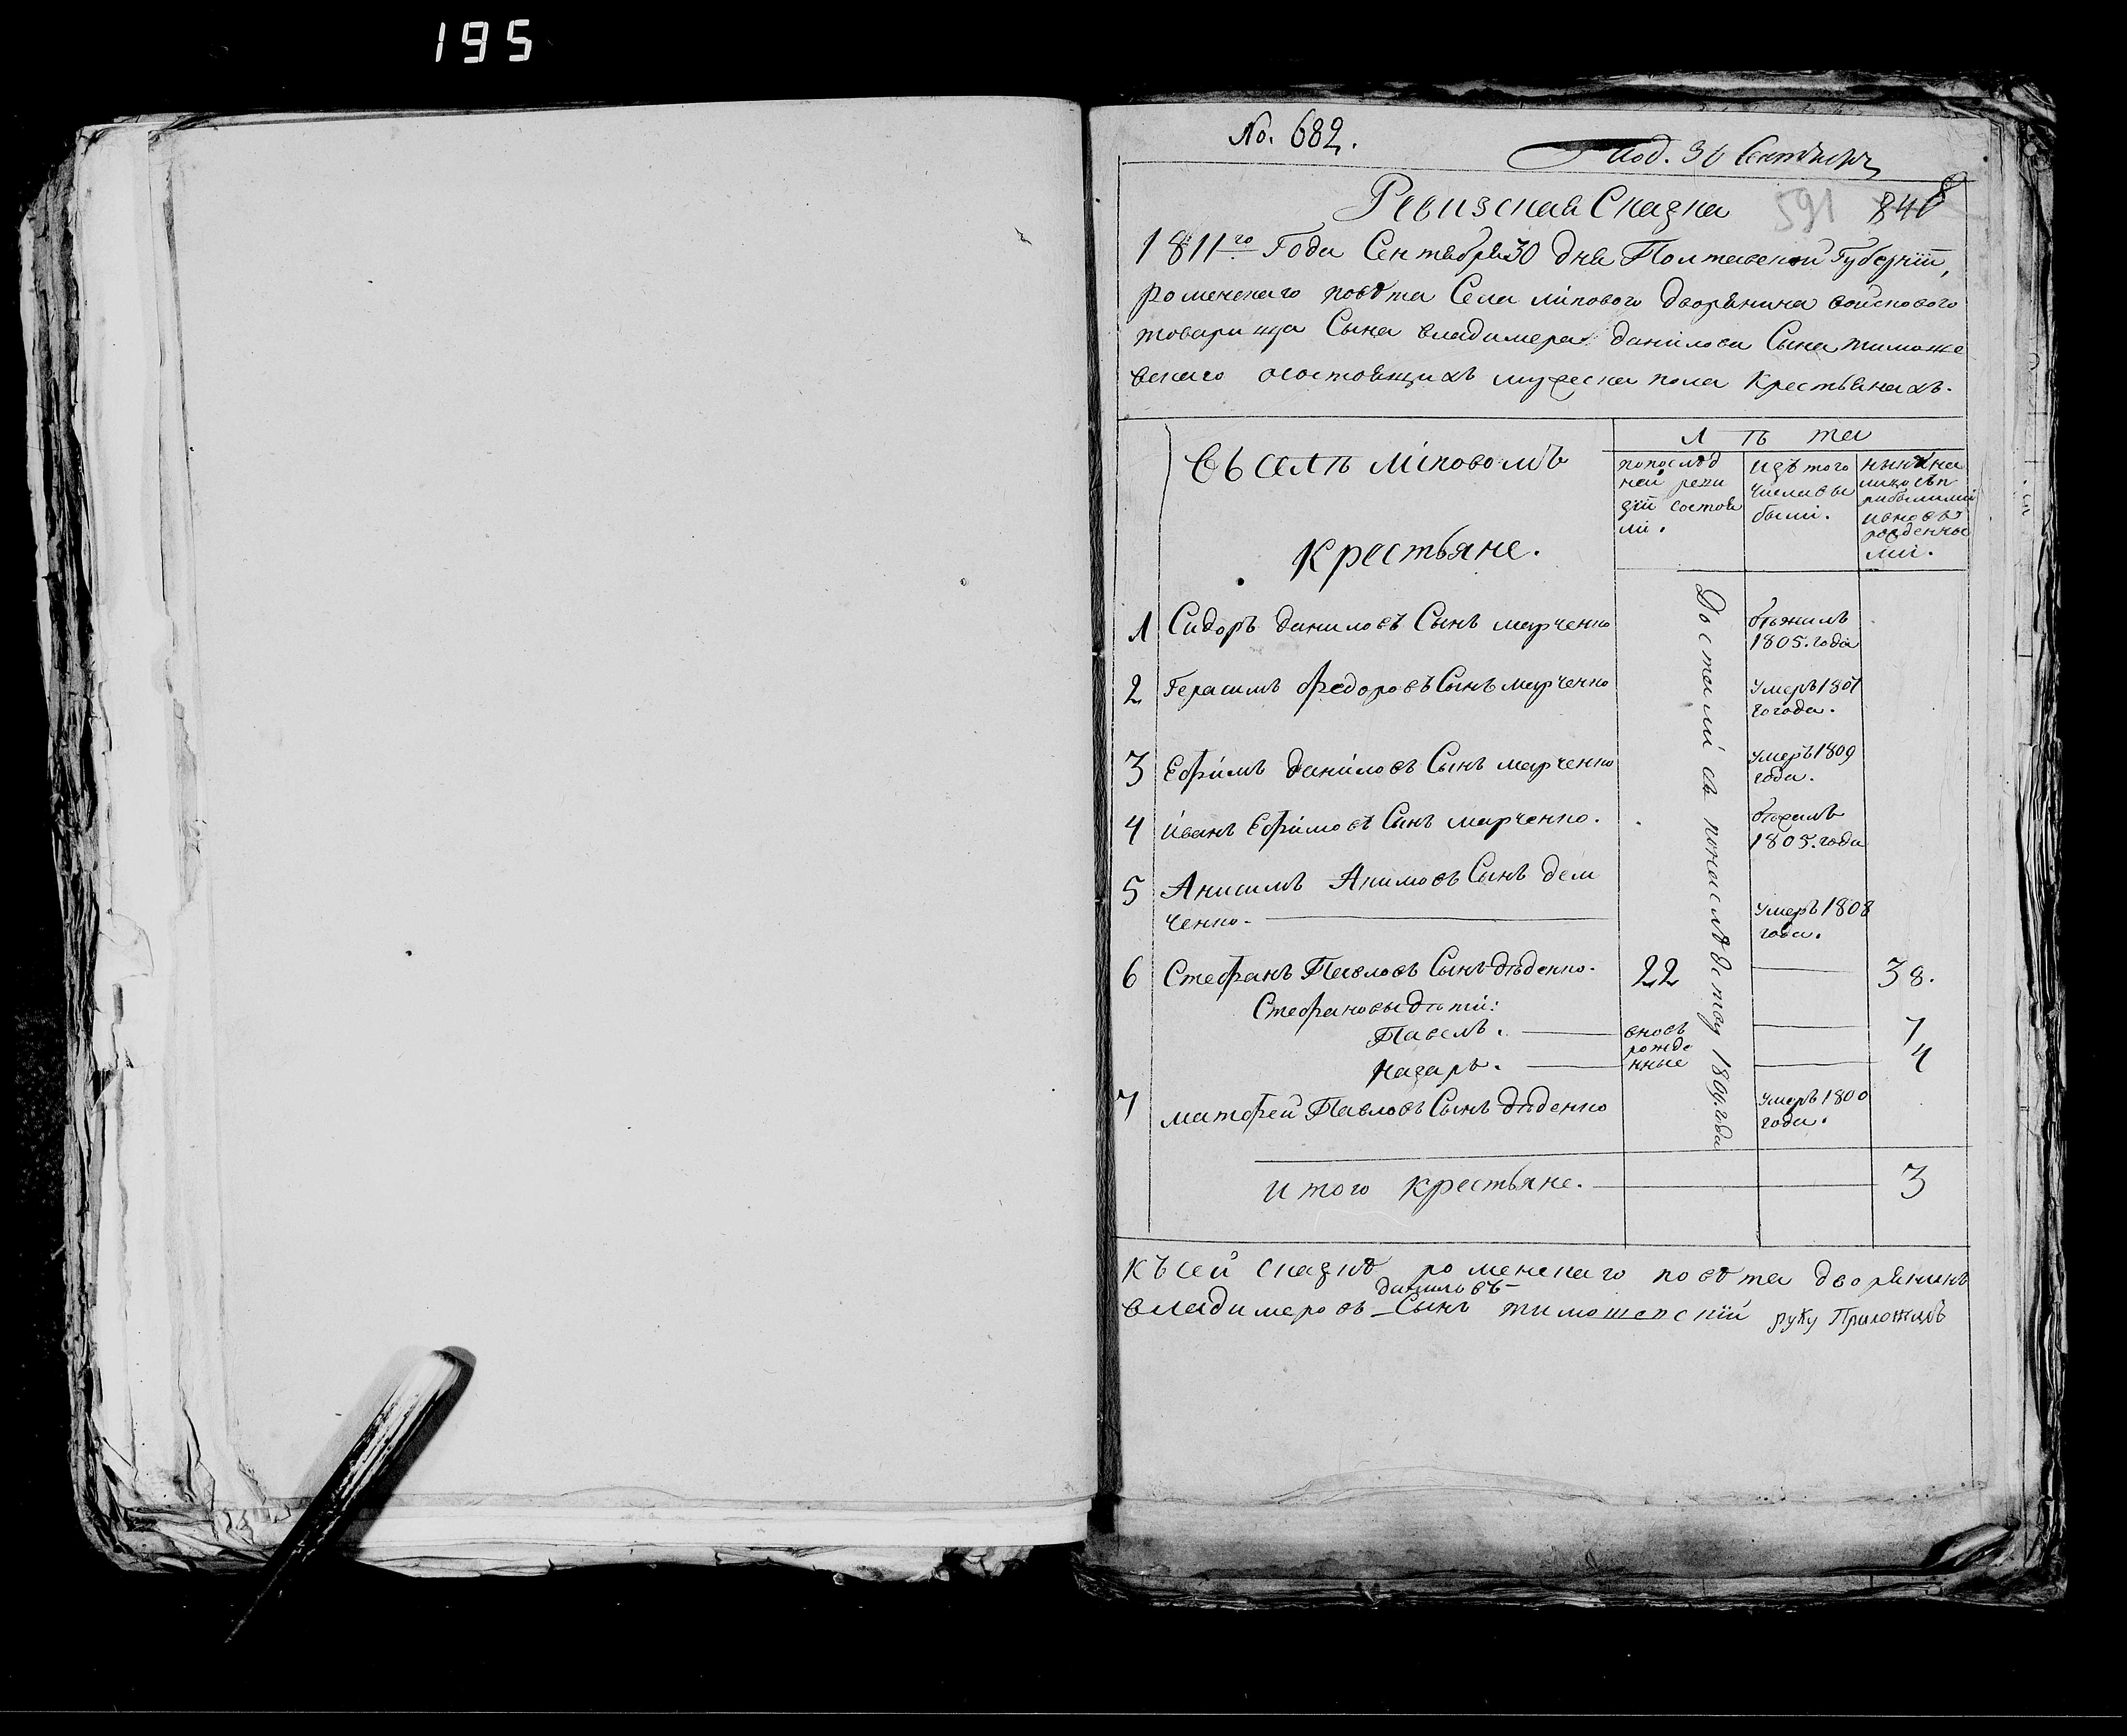 195
No. 682.
Под. 30 Сентября
Ревизская Сказка 591 840
1811го Года Сентября 30 дня Полтавской Губернїи,
роменскаго повѣта Села липоваго дворянина войскового
товарища Сына владимера данилова Сына тимоше
вскаго осостоящихъ мужеска пола крестьянахъ.
Въ селѣ лїповомъ
Крестьяне.
лѣта
попослѣд
ней реви
зїи состоя
ли.
изъ того
числа вы
были.
нынѣ на
лицо съп
рибылими
ивновь
рожденны
ми.
1 Сидоръ даниловъ Сынъ марченко
бѣжилъ
1805. года
2 Герасимъ федоровъ Сынъ марченко
умеръ 1807
го года.
3 Ефимъ даниловъ Сынъ марченко
умеръ 1809
года.
4 иванъ Ефимовъ Сынъ марченко.
1805. года
5 Анисимъ Акимовъ Сынъ дем
ченко.
умеръ 1808
года.
6 Стефанъ Павловъ Сынъ дѣденко. 22 38.
Стефановы дѣти:
Павелъ. 7
назаръ. 4
вновь
рожде
нные
7 матфей Павловъ Сынъ дѣденко
умеръ 1800
года.
Достался въ
году
итого крестьяне. 3
Къ сей сказкѣ роменскаго повѣта дворянинъ
даниловъ
владимеровъ Сынъ тимошевскїй руку Приложилъ